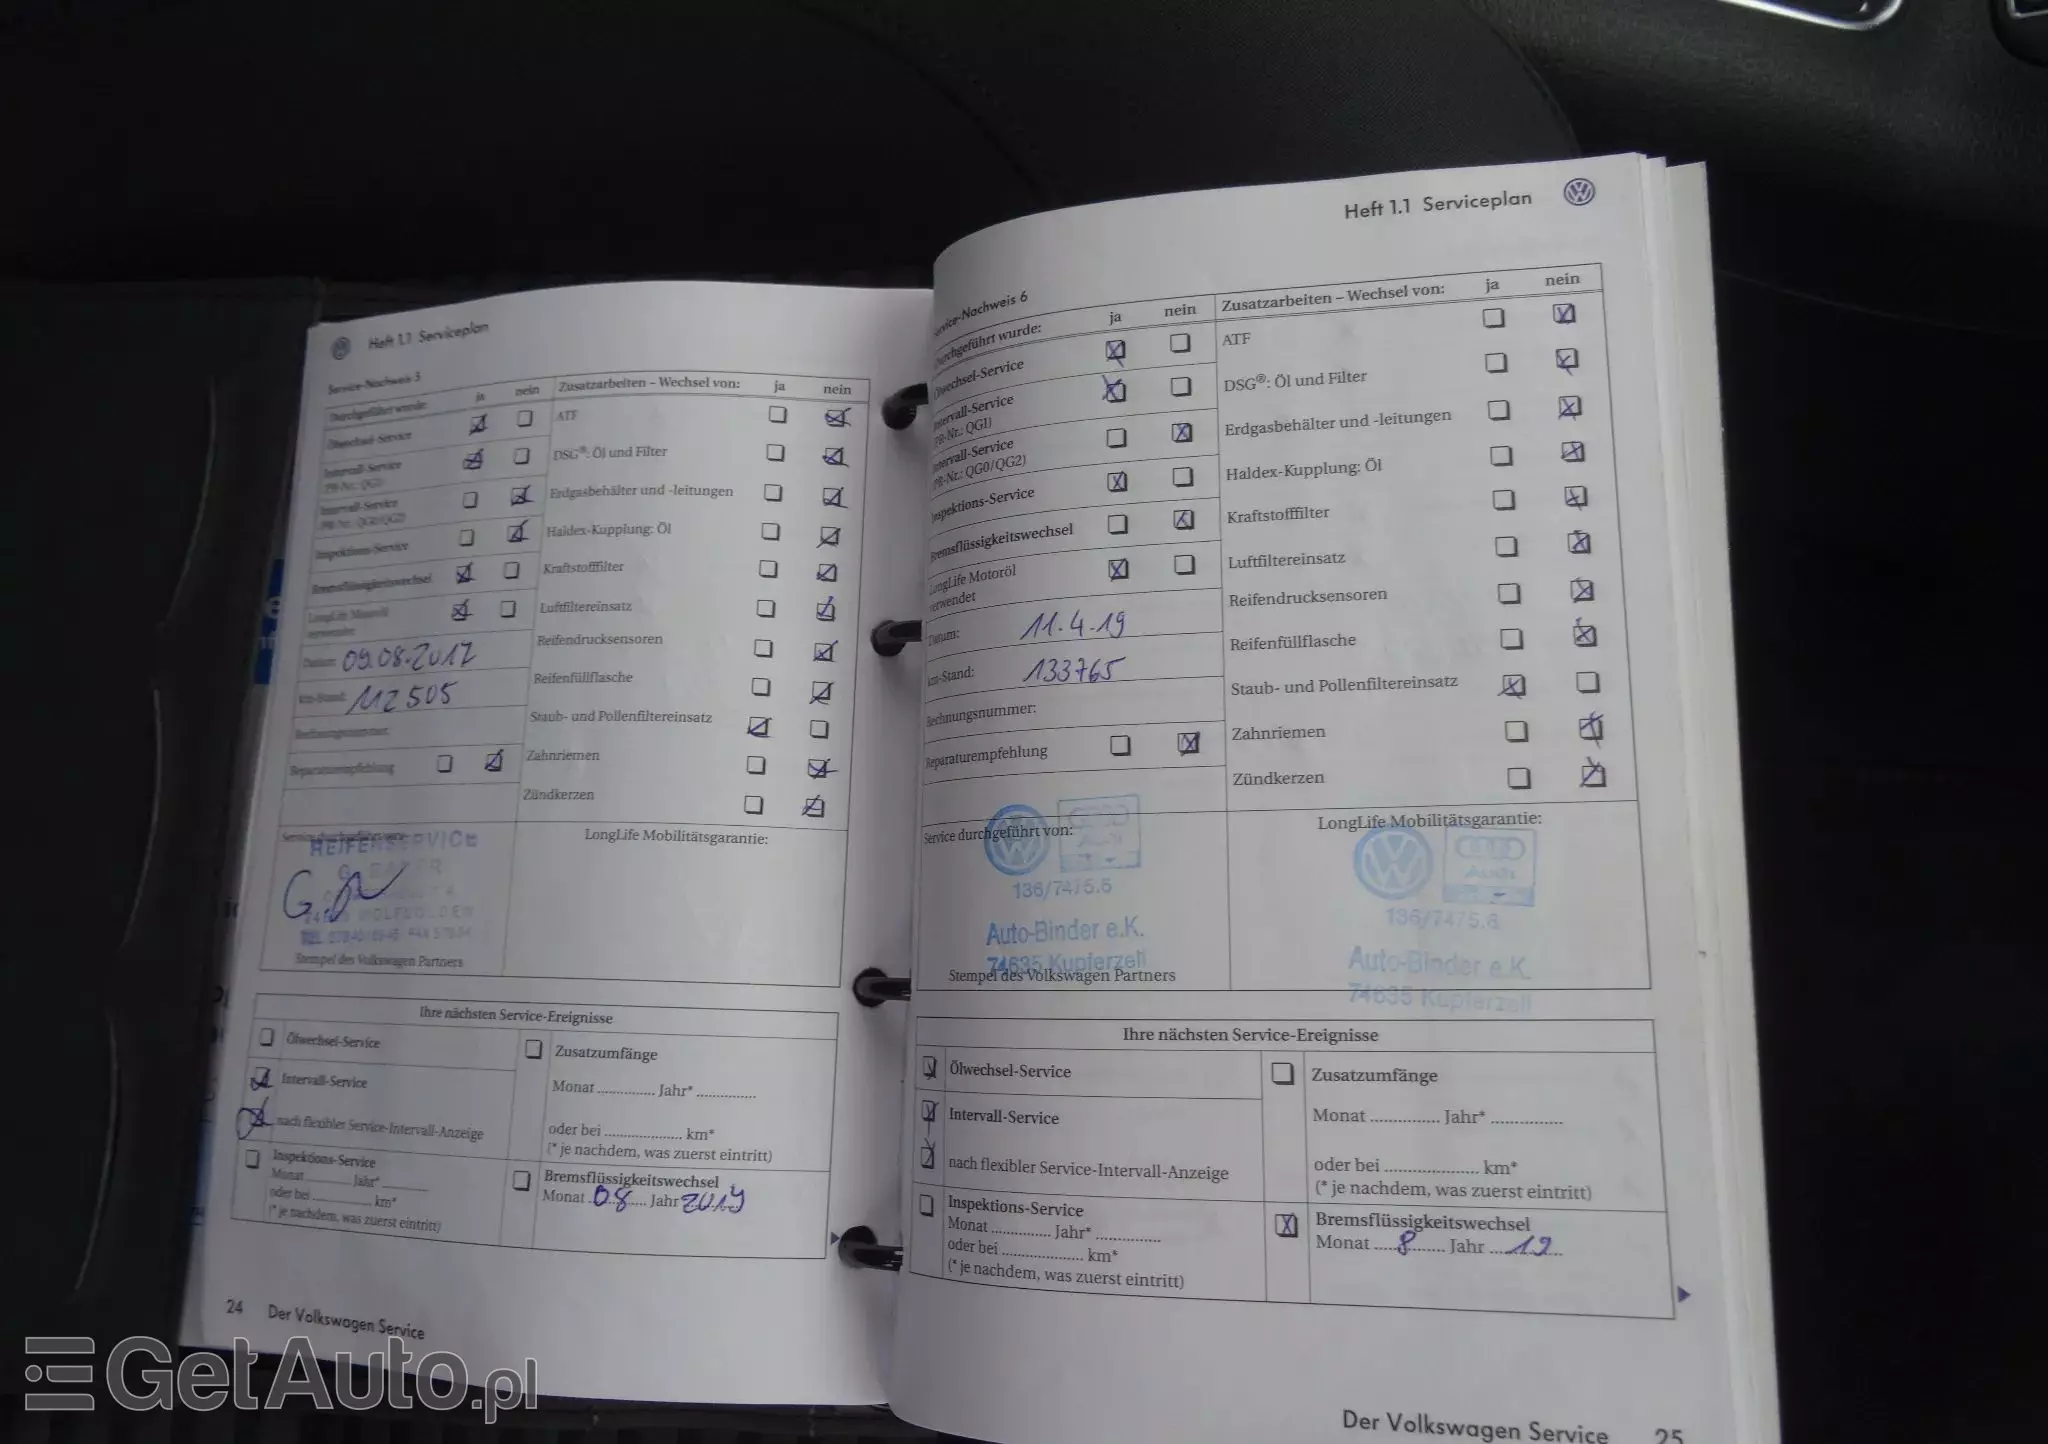 Heft 1.1 Serviceplan
Service-Nachweis 5
Durchgeführt wurde: ja nein
Ölwechsel-Service
Intervall-Service
(PR-Nr.: QG1)
Intervall-Service
(PR-Nr.: QG0/QG2)
Inspektions-Service
Bremsflüssigkeitswechsel
LongLife Motoröl
verwendet
Datum: 09.08.2017
km-Stand: 112505
Rechnungsnummer:
Reparaturempfehlung
Zusatzarbeiten – Wechsel von: ja nein
ATF
DSG®: Öl und Filter
Erdgasbehälter und -leitungen
Haldex-Kupplung: Öl
Kraftstofffilter
Luftfiltereinsatz
Reifendrucksensoren
Reifenfüllflasche
Staub- und Pollenfiltereinsatz
Zahnriemen
Zündkerzen
Service durchgeführt von:
REIFENSERVICE
Stempel des Volkswagen Partners
LongLife Mobilitätsgarantie:
Ihre nächsten Service-Ereignisse
Ölwechsel-Service
Intervall-Service
nach flexibler Service-Intervall-Anzeige
Inspektions-Service
Monat ............ Jahr* ............
oder bei ............ km*
(* je nachdem, was zuerst eintritt)
Zusatzumfänge
Monat .............. Jahr* ..............
oder bei .................... km*
(* je nachdem, was zuerst eintritt)
Bremsflüssigkeitswechsel
Monat 08 Jahr 2019
24 Der Volkswagen Service
Heft 1.1 Serviceplan
Service-Nachweis 6
Durchgeführt wurde: ja nein
Ölwechsel-Service
Intervall-Service
(PR-Nr.: QG1)
Intervall-Service
(PR-Nr.: QG0/QG2)
Inspektions-Service
Bremsflüssigkeitswechsel
LongLife Motoröl
verwendet
Datum: 11.4.19
km-Stand: 133765
Rechnungsnummer:
Reparaturempfehlung
Zusatzarbeiten – Wechsel von: ja nein
ATF
DSG®: Öl und Filter
Erdgasbehälter und -leitungen
Haldex-Kupplung: Öl
Kraftstofffilter
Luftfiltereinsatz
Reifendrucksensoren
Reifenfüllflasche
Staub- und Pollenfiltereinsatz
Zahnriemen
Zündkerzen
Service durchgeführt von:
Audi
136/7475.6
Auto-Binder e.K.
74635 Kupferzell
Stempel des Volkswagen Partners
LongLife Mobilitätsgarantie:
Audi
136/7475.6
Auto-Binder e.K.
74635 Kupferzell
Ihre nächsten Service-Ereignisse
Ölwechsel-Service
Intervall-Service
nach flexibler Service-Intervall-Anzeige
Inspektions-Service
Monat .............. Jahr* ..............
oder bei .................... km*
(* je nachdem, was zuerst eintritt)
Zusatzumfänge
Monat .............. Jahr* ..............
oder bei .................... km*
(* je nachdem, was zuerst eintritt)
Bremsflüssigkeitswechsel
Monat 8 Jahr 19
Der Volkswagen Service 25
GetAuto.pl